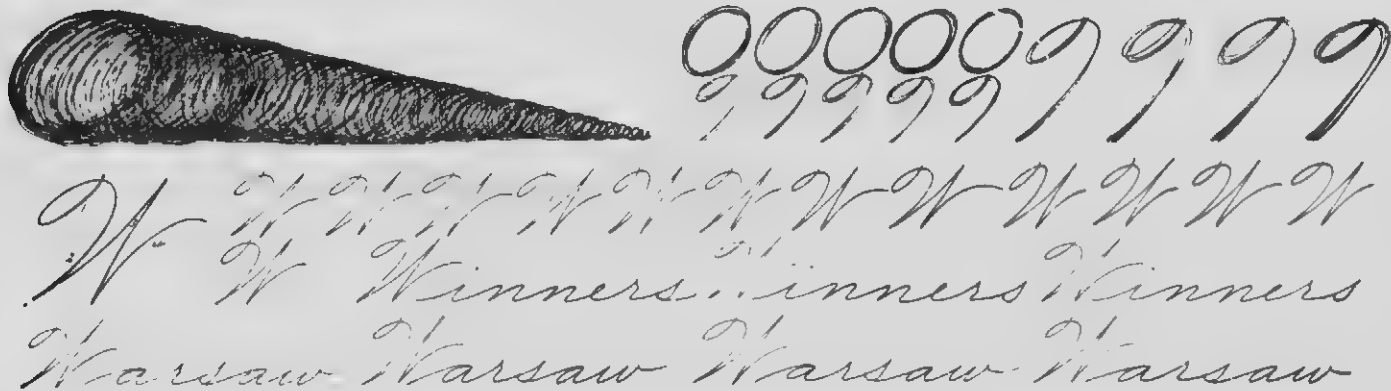 OOOOO 9 9 9 9
9 9 9 9 9
W W W W W W W W W W W W W
W Winners Winners Winners
Warsaw Warsaw Warsaw Warsaw